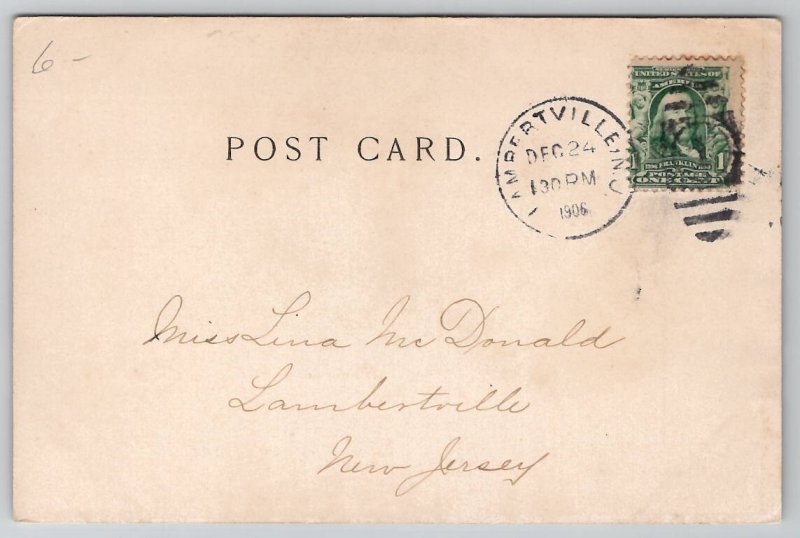 6-
POST CARD.
LAMBERTVILLE, N.J.
DEC 24
1 30 PM
1906
UNITED STATES OF
AMERICA
FRANKLIN
POSTAGE
1 ONE CENT 1
Miss Lina McDonald
Lambertville
New Jersey